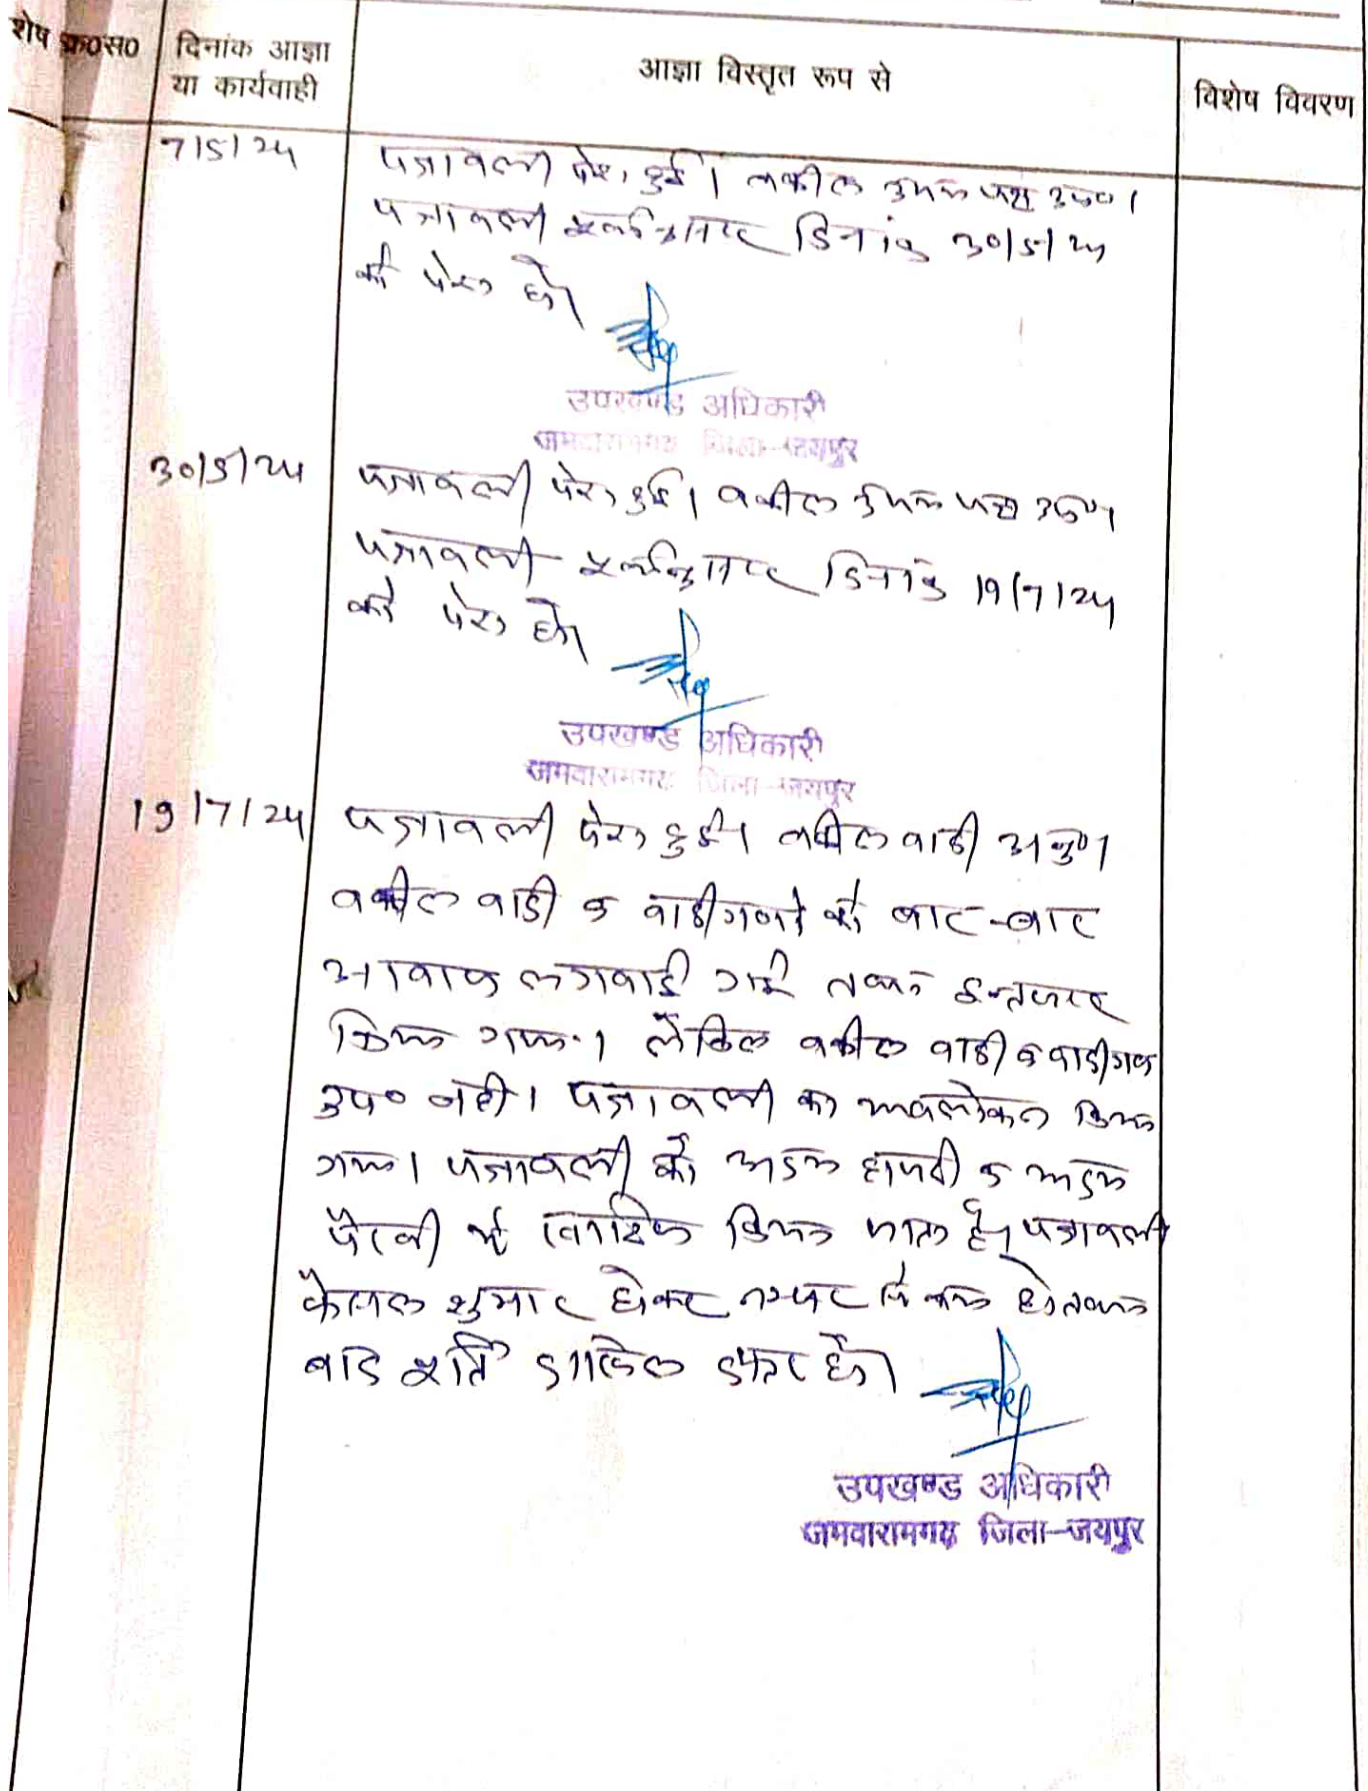 शेष क्र०स०
दिनांक आज्ञा
या कार्यवाही
आज्ञा विस्तृत रूप से
विशेष विवरण
7/5/24
पत्रावली पेश हुई। वकील उभय पक्ष उप०।
पत्रावली दिनांक 30/5/24
को पेश हो।
उपखण्ड अधिकारी
जमवारामगढ जिला-जयपुर
30/5/24
पत्रावली पेश हुई। वकील उभय पक्ष उप०।
पत्रावली दिनांक 19/7/24
को पेश हो।
उपखण्ड अधिकारी
जमवारामगढ जिला-जयपुर
19/7/24
पत्रावली पेश हुई। वकील वादी अनु०।
वकील वादी व वादीगणों को बार-बार
आवाज लगवाई गई तथा इन्तजार
किया गया। लेकिन वकील वादी व वादीगण
उप० नही। पत्रावली का अवलोकन किया
गया। पत्रावली को अदम हाजरी व अदम
पैरवी में खारिज किया जाता है। पत्रावली
फैसल शुमार होकर नम्बर से कम हो तथा
बाद दाखिल दफ्तर हो।
उपखण्ड अधिकारी
जमवारामगढ जिला-जयपुर